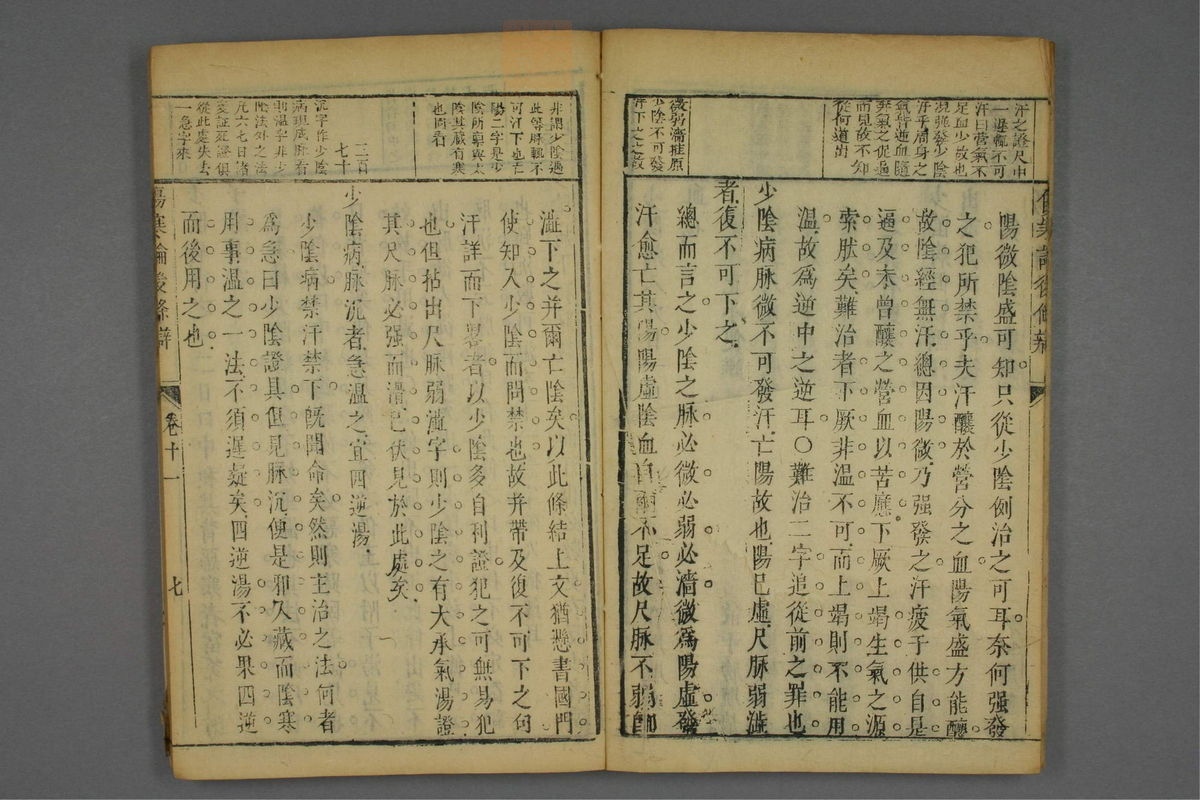 汗之證尺中
一澀輒不可
汗曰營氣不
足血少故也
況强發少陰
汗乎周身之
氣皆逆血隨
奔氣之促逼
而見故不知
從何道出
微弱濇推原
少陰不可發
汗下之之故
陽微陰盛可知只從少陰例治之可耳奈何强發
之犯所禁乎夫汗釀於營分之血陽氣盛方能釀
故陰經無汗總因陽微乃强發之汗疲于供自是
逼及未曾釀之營血以苦應下厥上竭生氣之源
索然矣難治者下厥非溫不可而上竭則不能用
溫故爲逆中之逆耳○難治二字追從前之罪也
少陰病脉微不可發汗亡陽故也陽已虛尺脉弱澁
者復不可下之
總而言之少陰之脉必微必弱必濇微爲陽虛發
汗愈亡其陽陽虛陰血自爾不足故尺脉不弱卽
傷寒論後條辨
非謂少陰遇
此等脉輒不
可汗下也亡
陽二字是少
陰所禀與太
陰其藏有寒
也同看
三百
七十
沉字作少陰
病現底脉看
則溫字非少
陰法外之法
凡六七日洛
變証死證俱
從此處失去
一急字來
澁下之并爾亡陰矣以此條結上文猶懸書國門
使知入少陰而問禁也故并帶及復不可下之句
汗詳而下畧者以少陰多自利證犯之可無易犯
也但拈出尺脉弱濇字則少陰之有大承氣湯證
其尺脉必强而滑已伏見於此處矣
少陰病脉沉者急溫之宜四逆湯
少陰病禁汗禁下既聞命矣然則主治之法何者
爲急曰少陰證具但見脉沉便是邪入藏而陰寒
用事溫之一法不須遲疑矣四逆湯不必果四逆
而後用之也
傷寒論後條辨
卷十一
七